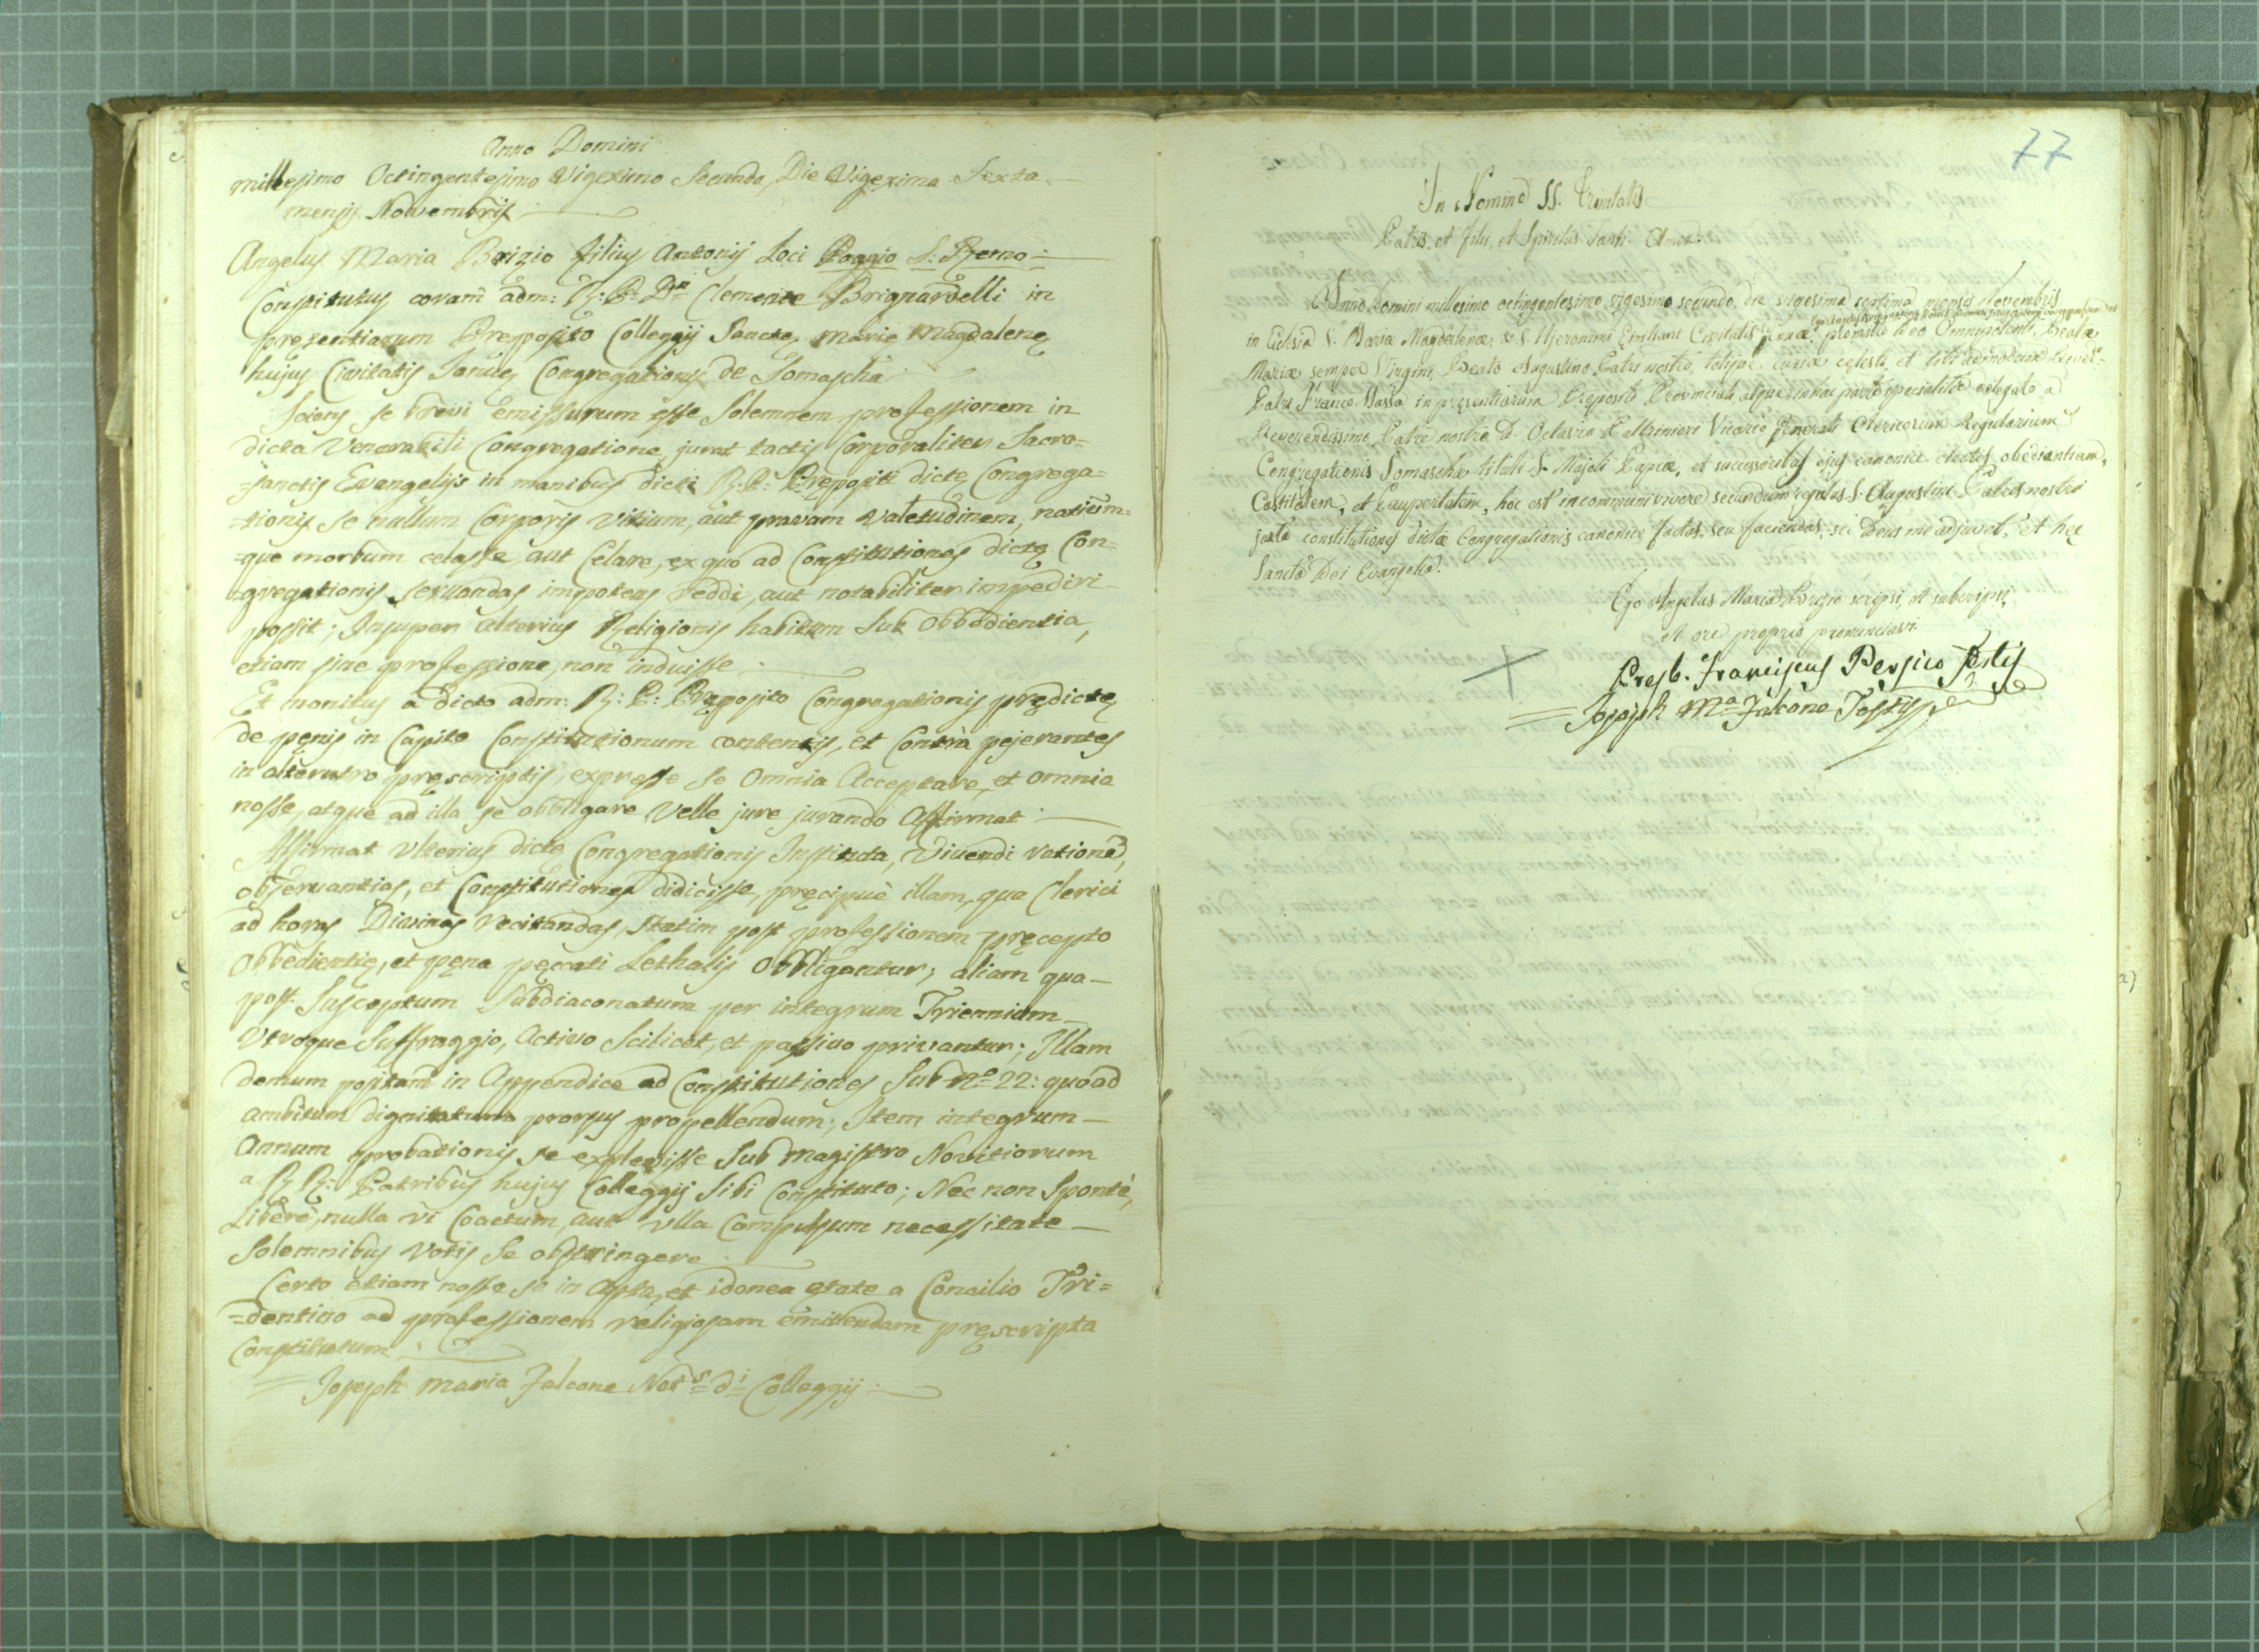 Anno Domini
millesimo Octingentesimo Vigesimo Secundo, Die Vigesima Sexta
mensis Novembris
Angelus Maria Brizio filius Antonij Loci Poggio S: Remo =
Constitutus coram adm: R: P: Dn Clemente Brignardelli in
presentiarum Preposito Colleggij Sanctę Marię Magdalenę
hujus Civitatis Januę Congregationis de Somascha
Sciens se brevi emissurum esse Solemnem professionem in
dicta Venerabili Congregatione, jurat tactis Corporaliter Sacro=
=sanctis Evangelijs in manibus dicti R: P: Prępositi dictę Congrega=
=tionis se nullum Corporis Vitium, aut pravam Valetudinem, notium=
=que morbum celasse aut Celare, ex quo ad Constitutiones dictę Con=
=gregationis servandas impotens reddi, aut notabiliter impediri
possit; Insuper alterius Religionis habitum Sub Obbedientia,
etiam sine professione, non induisse
Et monitus a dicto adm: R: P: Pręposito Congregationis prędictę
de pęnis in Capite Constitutionum contentis, et Contrà pejerantes
in alterutro pręscriptis, expresse se Omnia Acceptare, et omnia
nosse, atque ad illa se obbligare Velle jure jurando Affirmat
Affirmat Ulterius dictę Congregationis Instituta, Vivendi rationē,
observantias, et Constitutiones didicisse, pręcipuè illam, qua Clerici
ad horas Divinas recitandas, Statim post professionem pręcepto
Obbedientię, et pęna pęccati Lethalis Obbligantur; aliam qua
post Susceptum Subdiaconatum per integrum Triennium
Utroque Suffraggio, Activo Scilicet, et passivo privantur; Illam
demum positam in Appendice ad Constitutiones Sub No 22: quoad
ambitum dignitatum prorsus propellendum; Item integrum
Annum probationis se explevisse Sub Magistro Novitiorum
a R R: Patribus hujus Colleggij Sibi Constituto; Nec non Spontè,
Liberè, nulla vi Coactum, aut ulla Compulsum necessitate
Solemnibus Votis Se obstringere
Certo etiam nosse se in Apta, et idonea ętate a Concilio Tri=
=dentino ad professionem religiosam emittendam pręscripta
Constitutum
= Joseph Maria Falcone Nots di Colleggij
77
In Nomine SS. Trinitatis
Patris, et filii, et Spiritus Santi Amen.
Anno Domini millesimo octingentesimo vigesimo secundo, die vigesima septima mensis Novembris
in Eclesia S. Mariæ Magdalenæ, & S. Hjeronimi Emiliani Civitatis Januæ promitto Deo Omnipotenti, Beatæ
Mariæ semper Virgini, Beato Augustino Patri nostro, totique curiæ celesti, et tibi admodum Revdo
Patri Franco Massa in præsentiarum Preposito Provinciali, atque in hac parte specialiter delegato a
Reverendissimo Patre nostro D. Octavio Paltrinieri Vicario Generali Clericorum Regularium
Congregationis Somaschæ tituli S. Majoli Papiæ, et successoribus ejus canonice electis, obedientiam,
Castitatem, et Paupertatem, hoc est in communi vivere secundum regulas S. Augustini Patris nostri
juxta constitutiones dictæ Congregationis canonice factas, seu faciendas, sic Deus me adjuvet, et hec
Sancta Dei Evangelia.
Ego Angelus Maria Brizio scripsi, et subscripsi,
et ore proprio pronunciavi
Presb. Franciscus Persico Testis
= Joseph Ma Falcone Testis